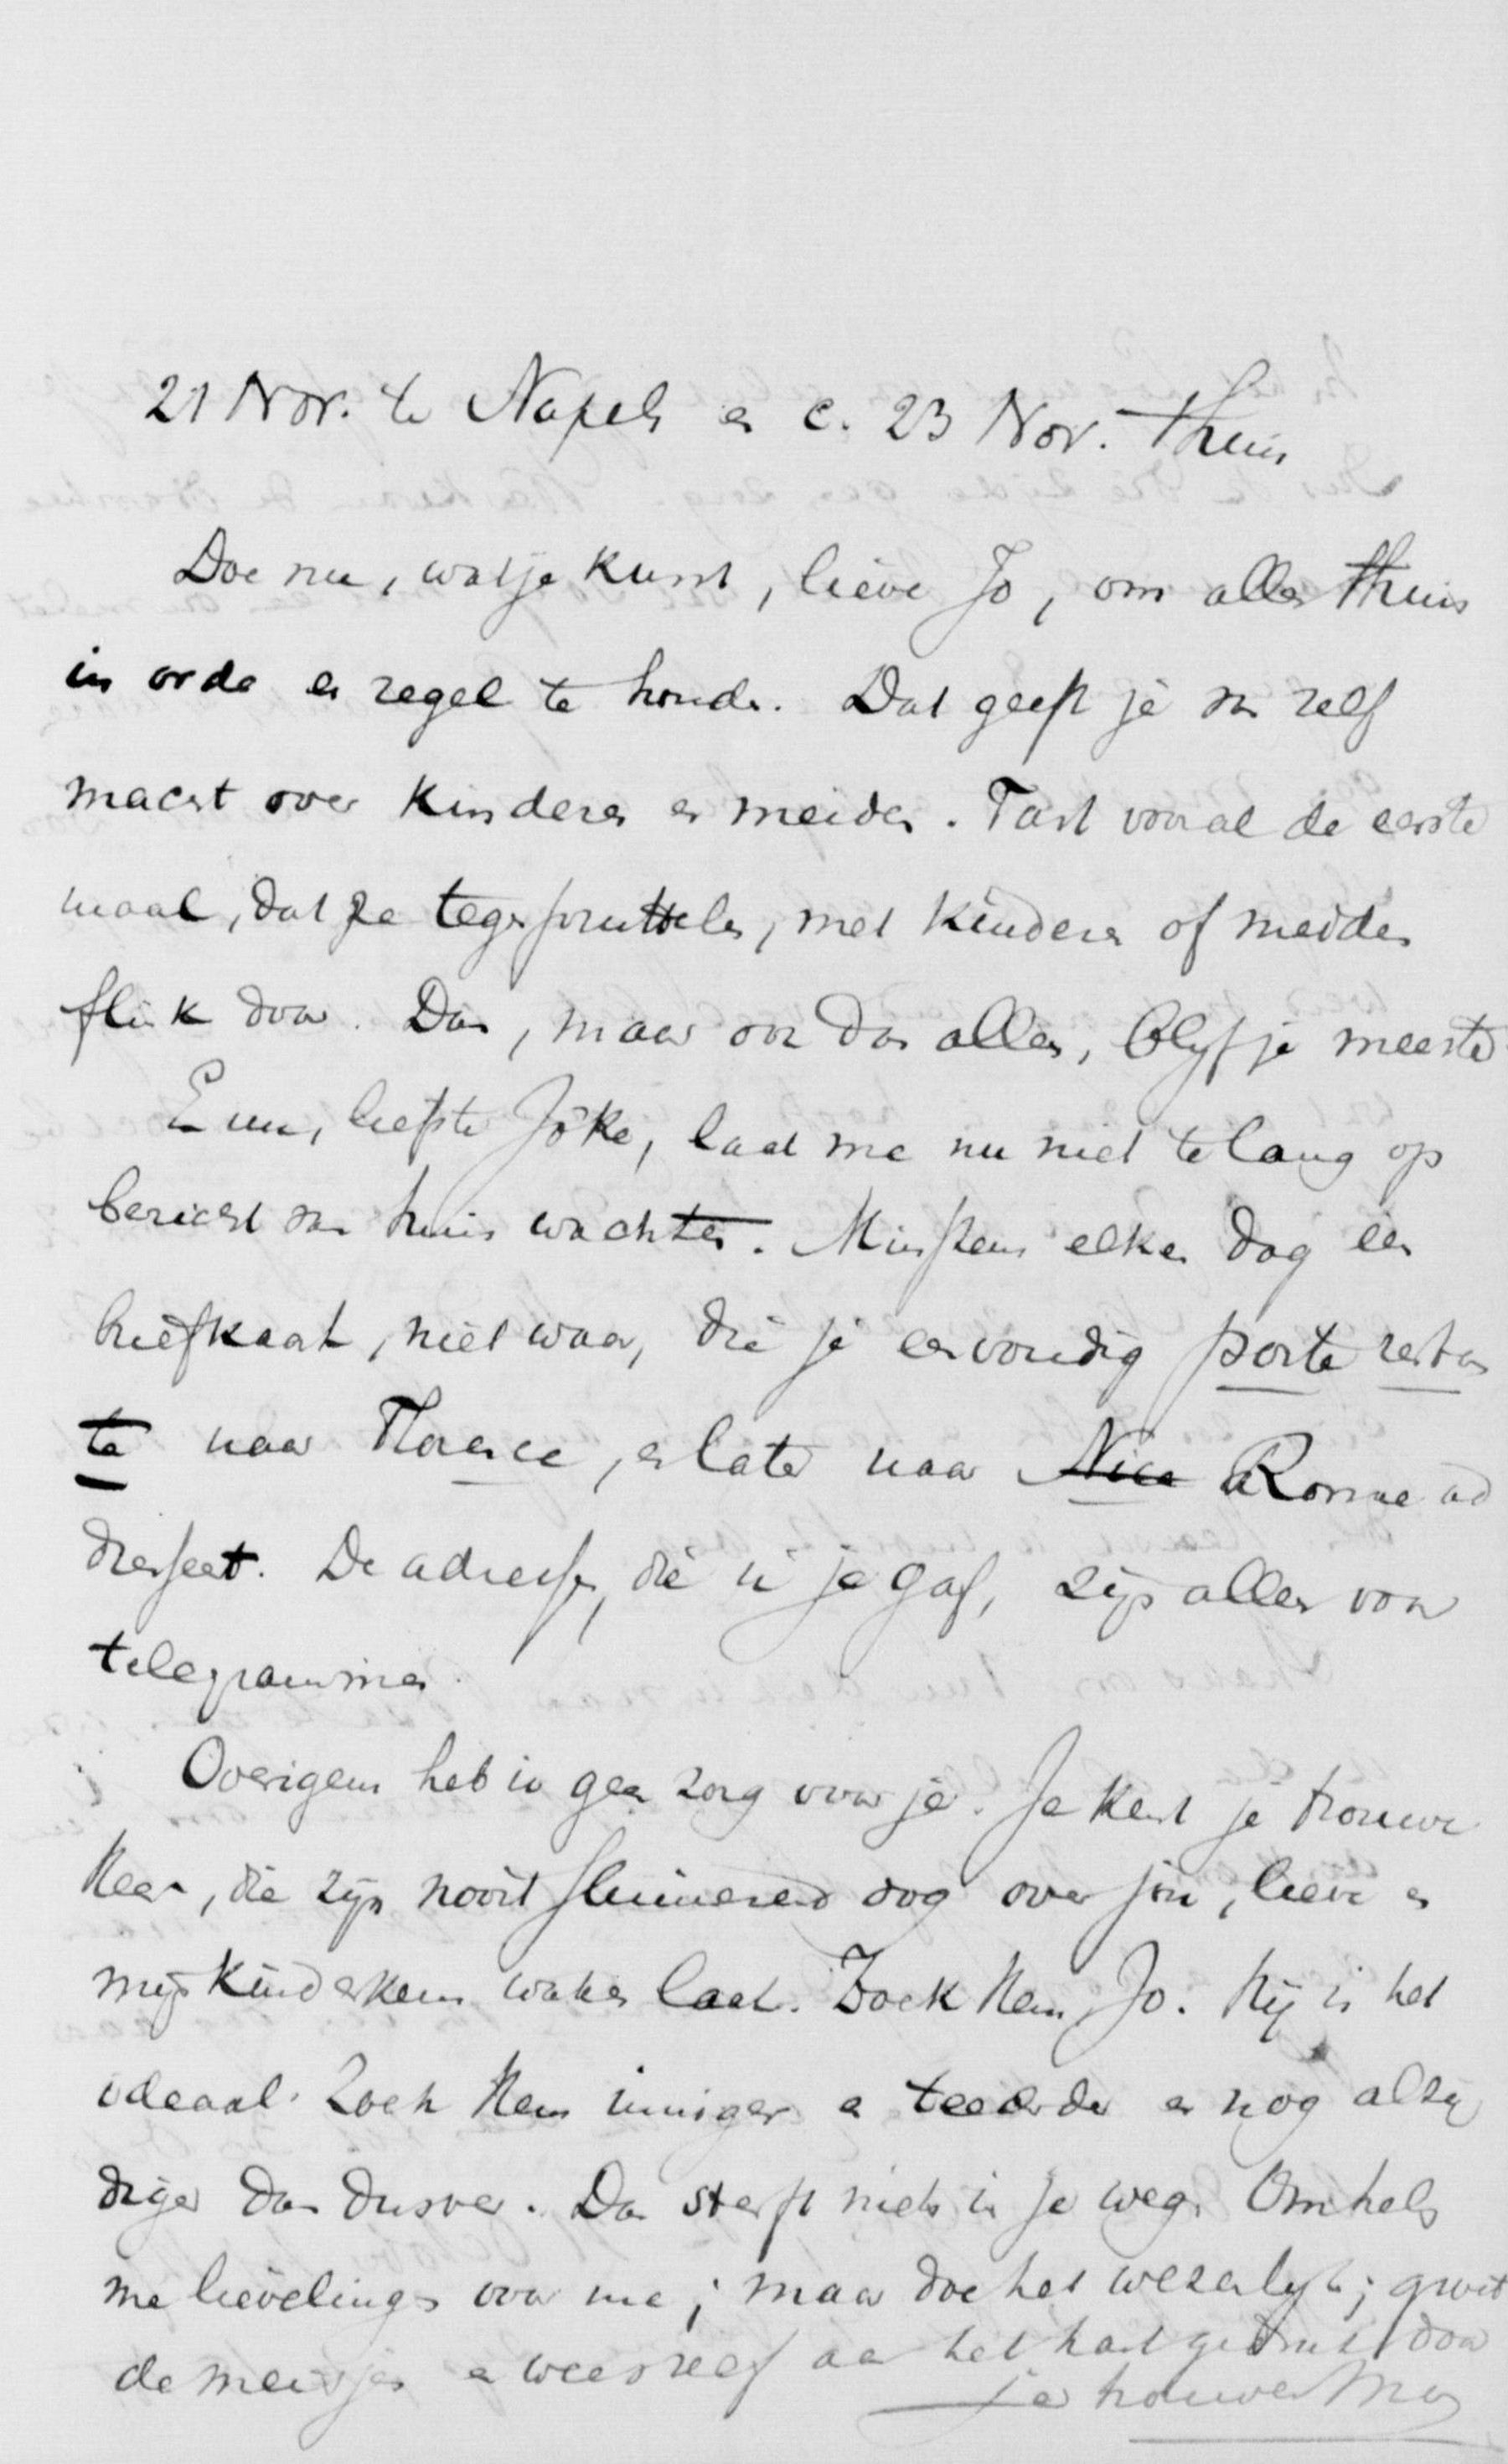 21 Nov. te Napels en c. 23 Nov. thuis
Doe nu, wat je kunt, lieve Jo, om alles thuis
in orde en regel te houden. Dat geeft je van zelf
macht over kinderen en meiden. Tast vooral de eerste
maal, dat ze tegenpruttelen, met kinderen of meiden
flink door. Dan, maar ook dan alleen, blijf je meester
En nu, liefste Joke, laat me nu niet te lang op
bericht van huis wachten. Minstens elken dag een
briefkaart, niet waar, die je eenvoudig poste restan
te naar Florence, en later naar Nice Rome ad
dresseert. De adressen, die ik je gaf, zijn alleen voor
telegrammen.
Overigens heb ik geen zorg voor je. Je kent je trouwe
Heer, die zijn nooit sluimerend oog over jou, lieve en
mijn kinderkens waken laat. Zoek Hem, Jo. Hij is het
ideaal. Zoek Hem inniger en teederder en nog alzij
diger dan dusver. Dan sterft niets in je weg. Omhels
me lievelingen voor me; maar doe het wezenlijk; groet
de meisjes en wees zelf aan het hart gedrukt door
je trouwen Man